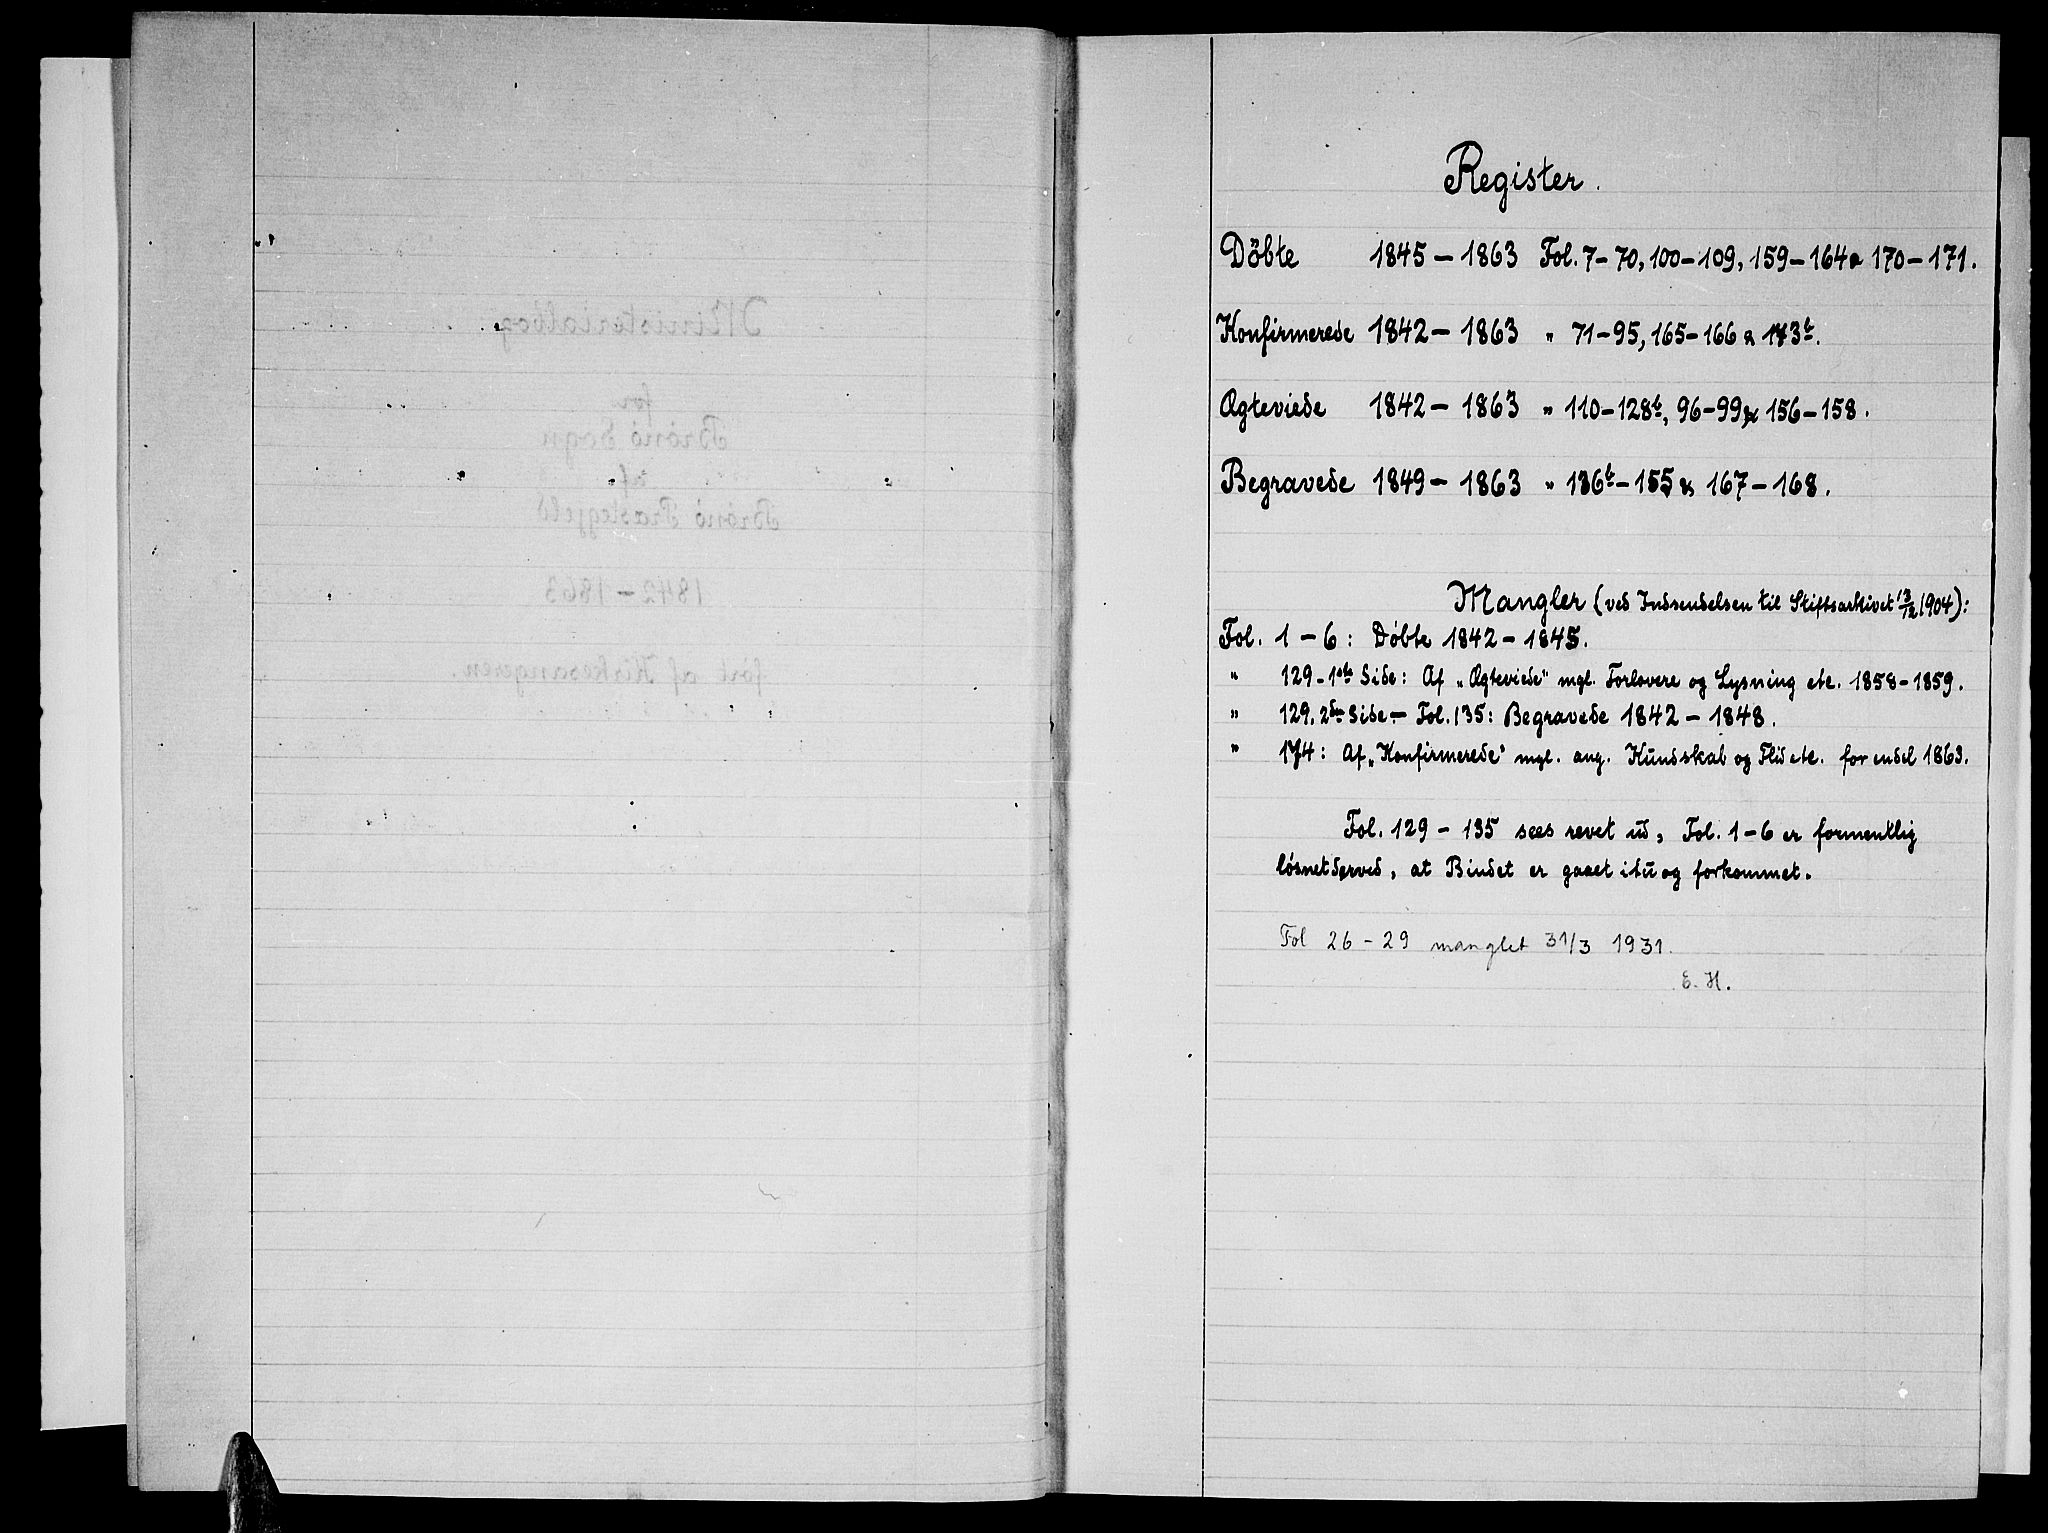 Ministerialbog
for
Brönö Sogn
af
Brönö Præstegjeld
1842 - 1863
ført af Kirkesangeren.
Register.
Döbte 1845 - 1863 Fol. 7-70, 100-109, 159-164 & 170-171.
Konfirmerede 1842 - 1863 " 71-95, 165-166 & 173b.
Ægteviede 1842 - 1863 " 110-128b, 96-99 & 156-158.
Begravede 1849 - 1863 " 136b-155 & 167-168.
Mangler (ved Indsendelsen til Stiftsarkivet 13/12 1904):
Fol. 1 - 6: Döbte 1842 - 1845.
" 129 - 1ste Side: Af „Ægteviede" mgl. Forlovere og Lysning etc. 1858-1859.
" 129. 2den Side - Fol. 135: Begravede 1842 - 1848.
" 174: Af „Konfirmerede" mgl. ang. Kundskab og Flid etc. for endel 1863.
Fol. 129 - 135 sees revet ud, Fol. 1-6 er formentlig
lösnet derved, at Bindet er gaaet itu og forkommet.
Fol 26 - 29 manglet 31/3 1931.
E. H.